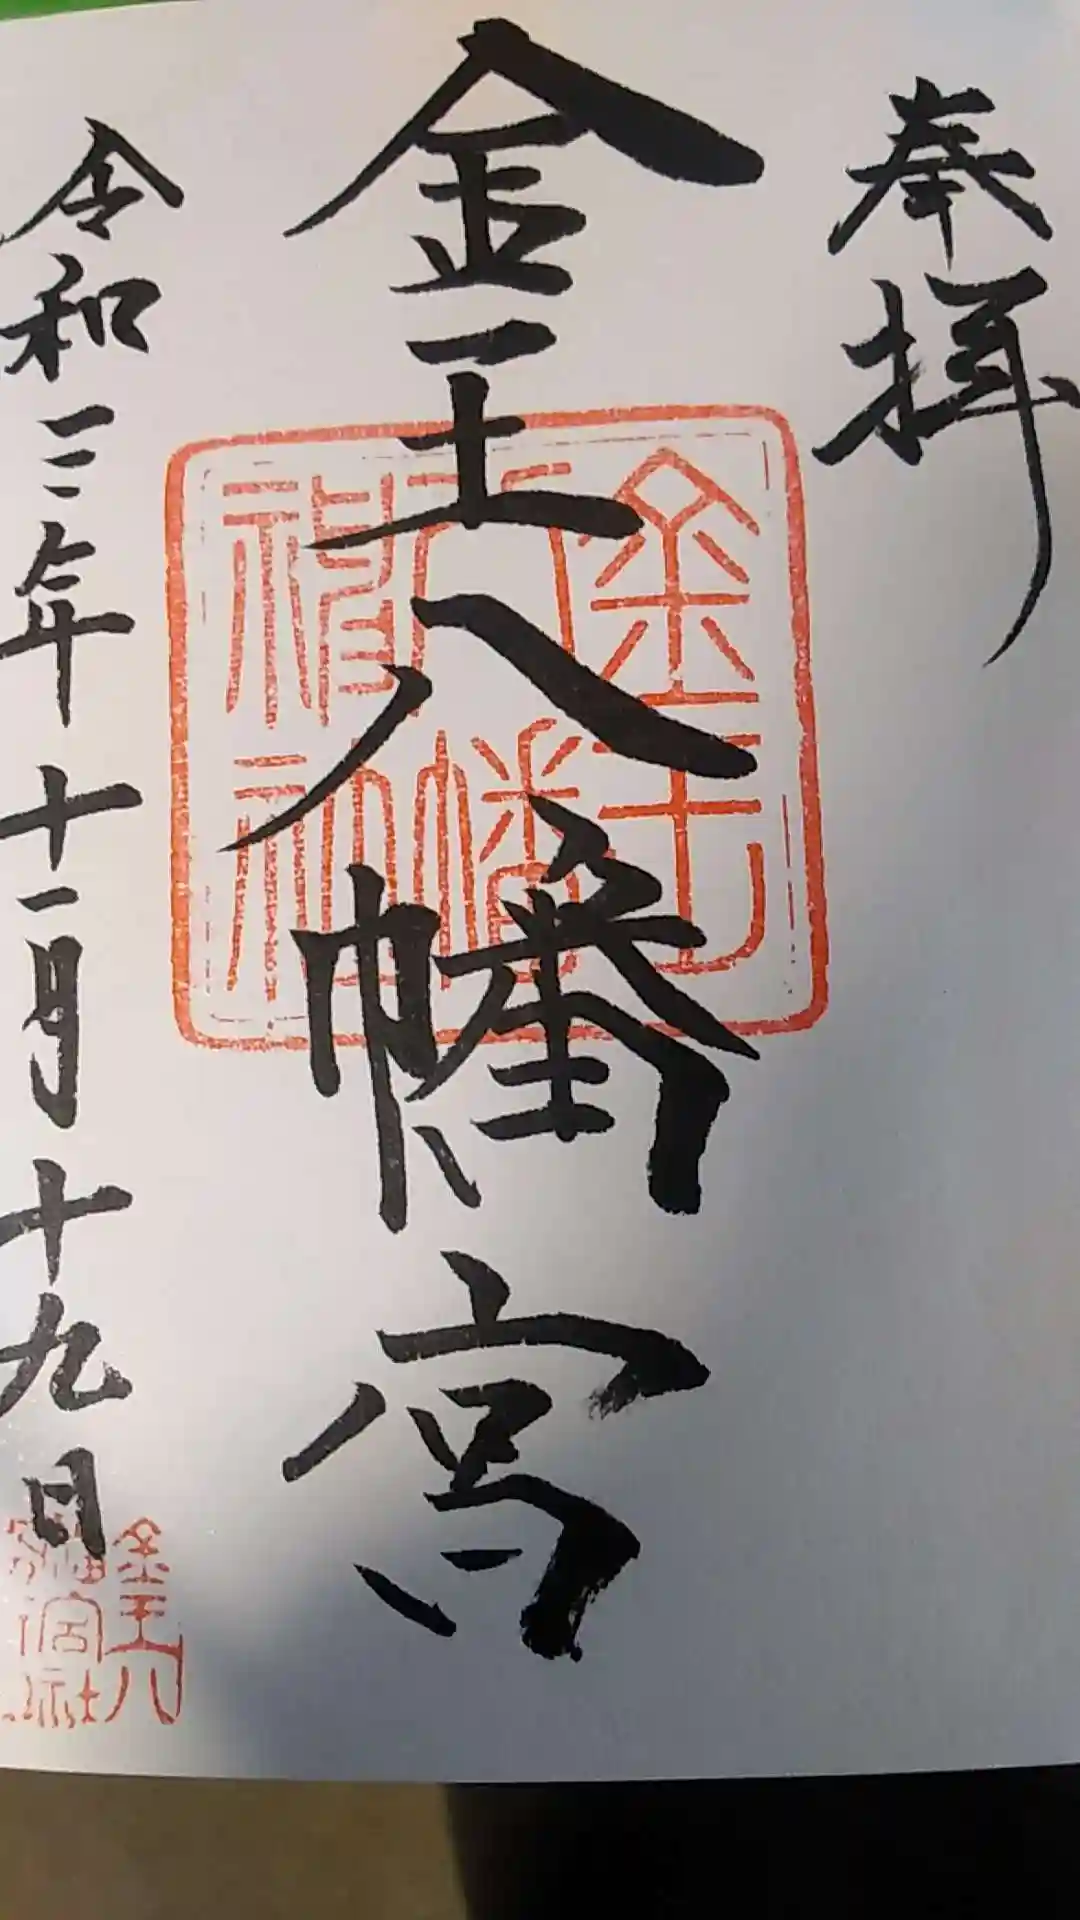 奉拝
金王八幡宮
令和三年十一月十九日
金王
八幡
神社
金王八
幡宮社